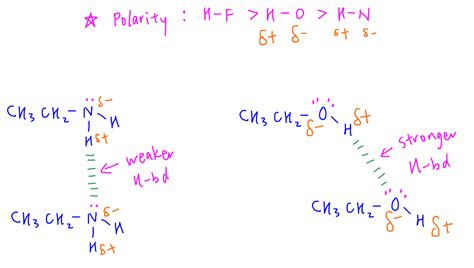 ☆ Polarity : H-F > H-O > H-N
δ+ δ- δ+ δ-
CH3 CH2 - N δ- H
H δ+
weaker
H-bd
CH3 CH2 - N δ- H
H δ+
CH3 CH2 - O H δ+
δ-
stronger
H-bd
CH3 CH2 - O H δ+
δ-